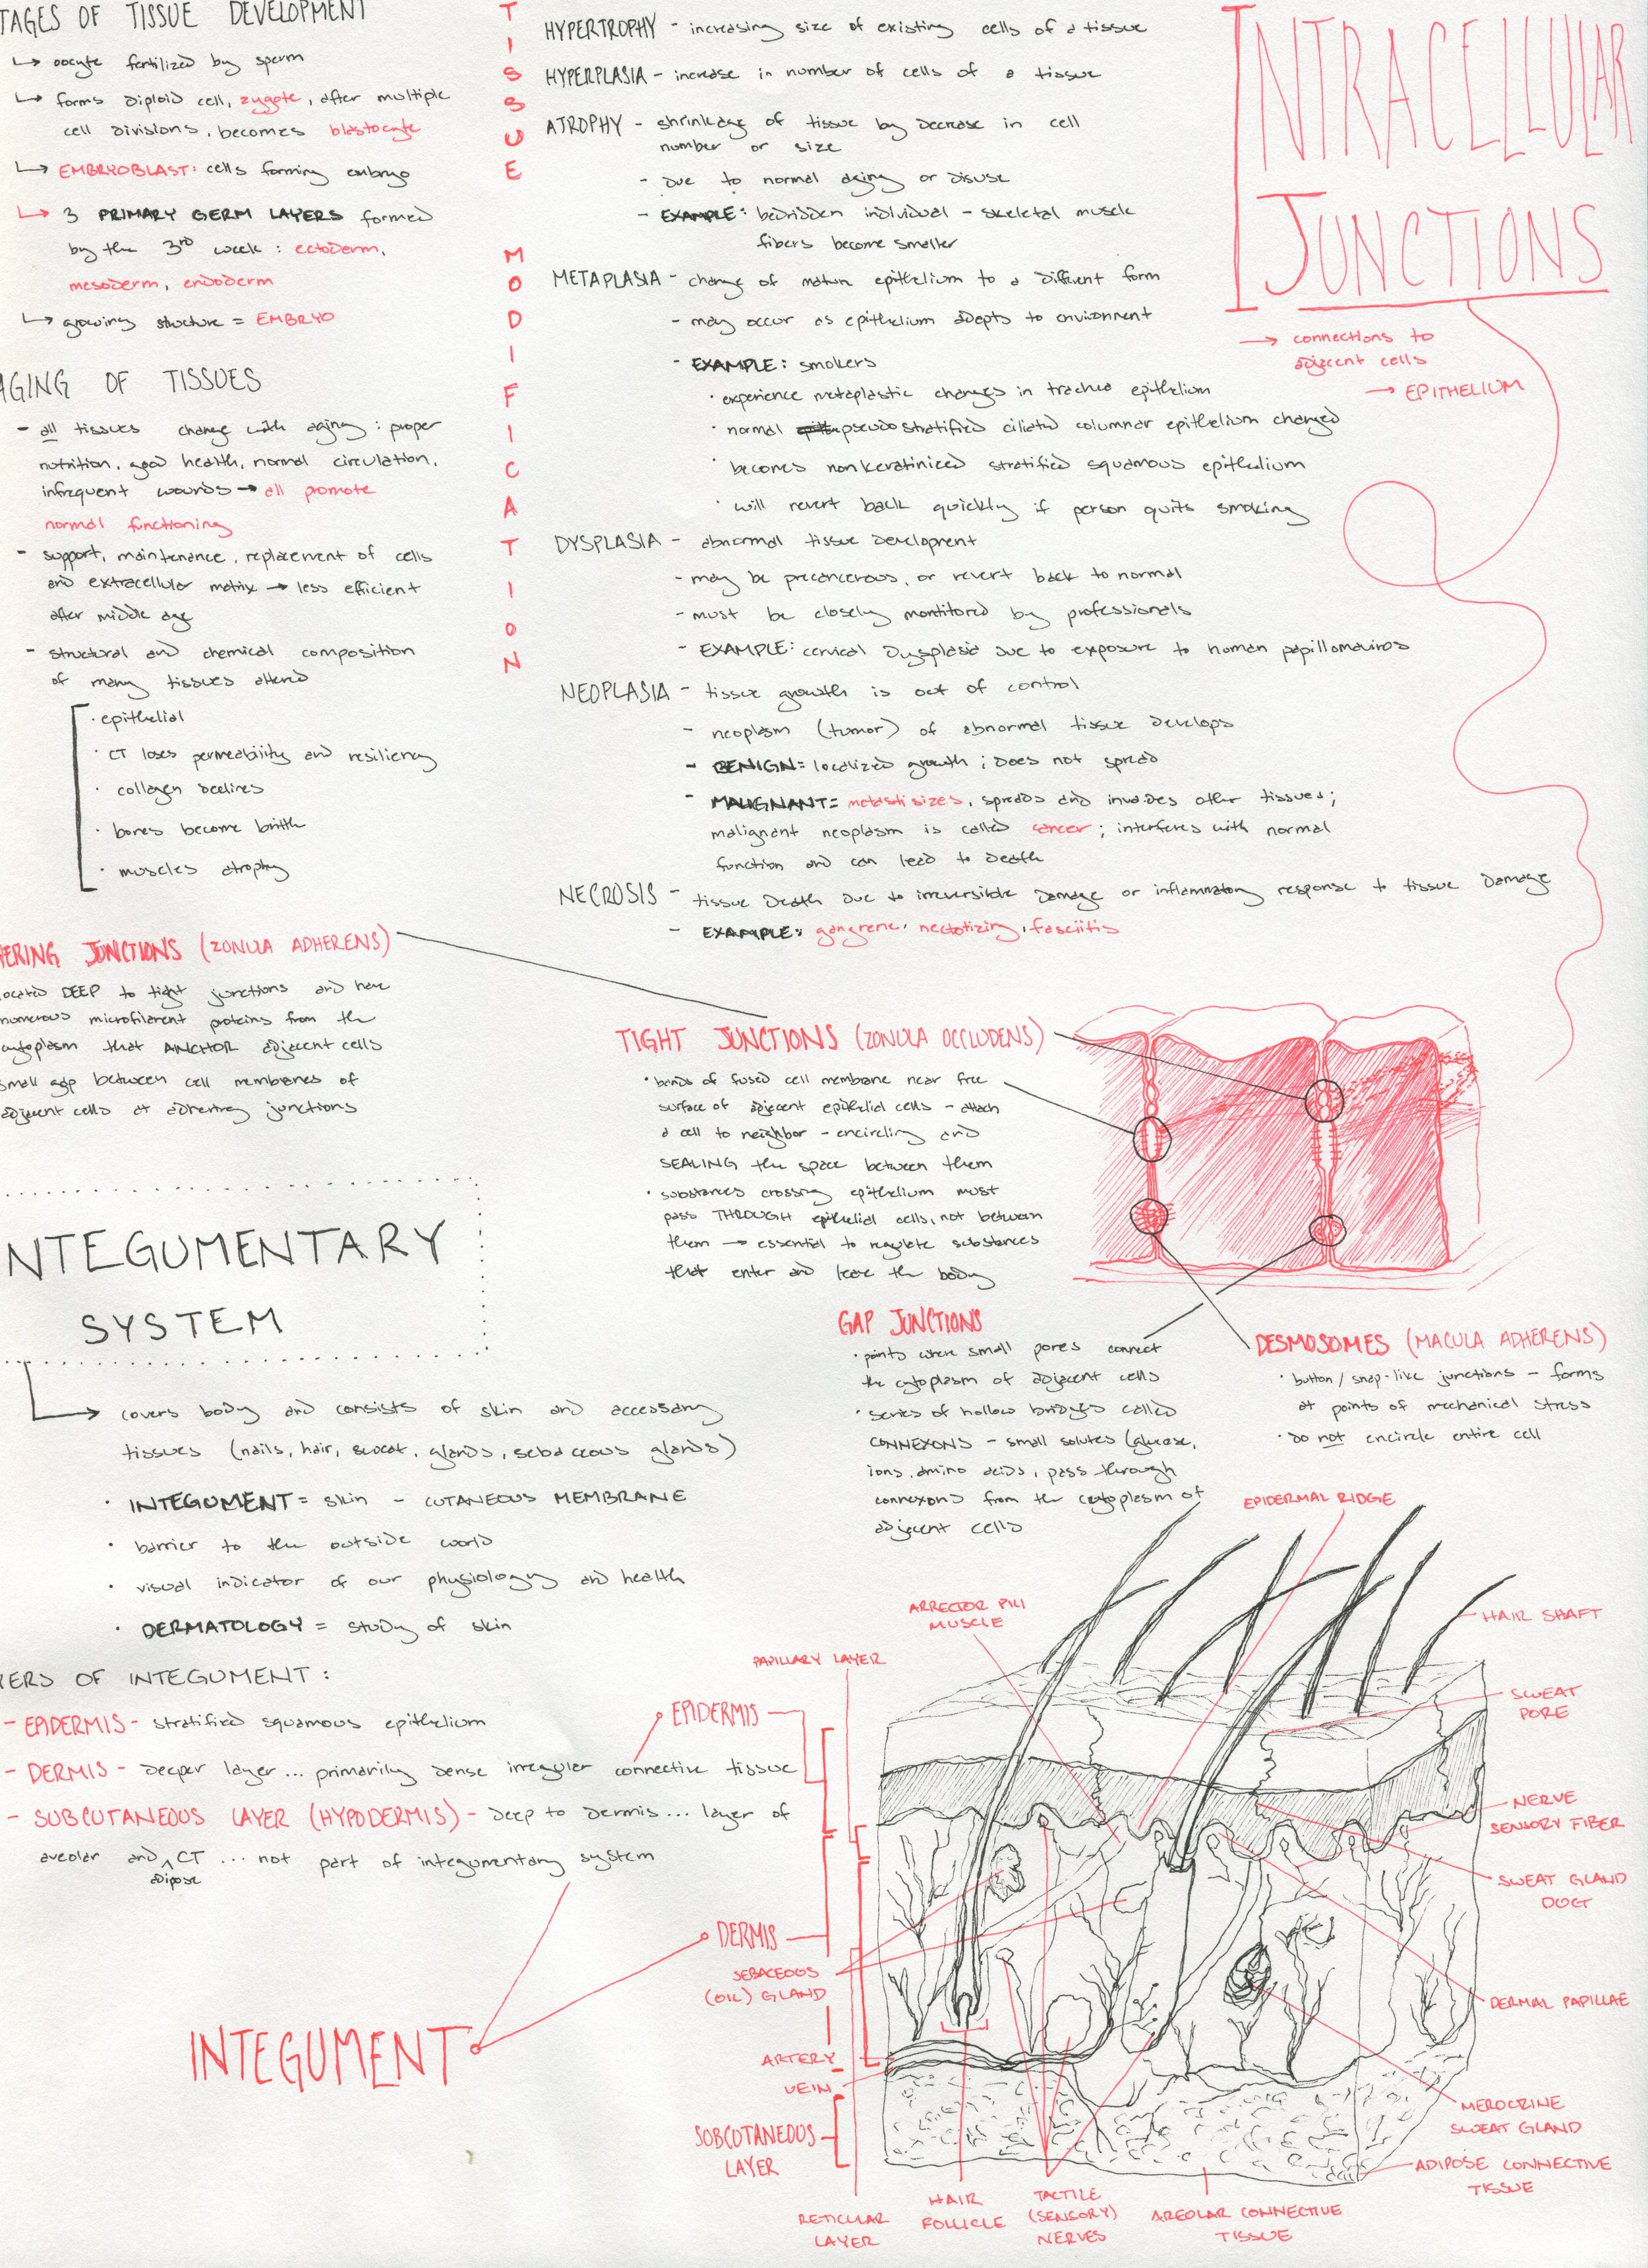 TAGES OF TISSUE DEVELOPMENT
↳ oocyte fertilized by sperm
↳ forms diploid cell, zygote, after multiple
cell divisions, becomes blastocyte
↳ EMBRYOBLAST: cells forming embryo
↳ 3 PRIMARY GERM LAYERS formed
by the 3rd week: ectoderm,
mesoderm, endoderm
↳ growing structure = EMBRYO
AGING OF TISSUES
- all tissues change with aging: proper
nutrition, good health, normal circulation,
infrequent wounds → all promote
normal functioning
- support, maintenance, replacement of cells
and extracellular matrix → less efficient
after middle age
- structural and chemical composition
of many tissues altered
· epithelial
· CT loses permeability and resiliency
· collagen declines
· bones become brittle
· muscles atrophy
TISSUE MODIFICATION
HYPERTROPHY - increasing size of existing cells of a tissue
HYPERPLASIA - increase in number of cells of a tissue
ATROPHY - shrinkage of tissue by decrease in cell
number or size
- due to normal aging or disuse
- EXAMPLE: bedridden individual - skeletal muscle
fibers become smaller
METAPLASIA - change of mature epithelium to a different form
- may occur as epithelium adapts to environment
- EXAMPLE: smokers
· experience metaplastic changes in trachea epithelium
· normal pseudostratified ciliated columnar epithelium changed
· becomes nonkeratinized stratified squamous epithelium
· will revert back quickly if person quits smoking
DYSPLASIA - abnormal tissue development
- may be precancerous, or revert back to normal
- must be closely montitored by professionals
- EXAMPLE: cervical dysplasia due to exposure to human papillomavirus
NEOPLASIA - tissue growth is out of control
- neoplasm (tumor) of abnormal tissue develops
- BENIGN = localized growth; does not spread
- MALIGNANT = metastisizes, spreads and invades other tissues;
malignant neoplasm is called cancer; interferes with normal
function and can lead to death
NECROSIS - tissue death due to irreversible damage or inflammatory response to tissue damage
- EXAMPLE: gangrene, nectotizing, fasciitis
INTRACELLULAR
JUNCTIONS
→ connections to
adjacent cells
→ EPITHELIUM
HERING JUNCTIONS (ZONULA ADHERENS)
located DEEP to tight junctions and have
numerous microfilament proteins from the
cytoplasm that ANCHOR adjacent cells
small gap between cell membranes of
adjacent cells at adhering junctions
TIGHT JUNCTIONS (ZONULA OCCLUDENS)
· bands of fused cell membrane near free
surface of adjecent epithelial cells - attach
a cell to neighbor - encircling and
SEALING the space between them
· substances crossing epithelium must
pass THROUGH epithelial cells, not between
them → essential to regulate substances
that enter and leave the body
GAP JUNCTIONS
· points where small pores connect
the cytoplasm of adjacent cells
· series of hollow bridges called
CONNEXONS - small solutes (glucose,
ions, amino acids, pass through
connexons from the cytoplasm of
adjacent cells
DESMOSOMES (MACULA ADHERENS)
· button/snap-like junctions - forms
at points of mechanical stress
· do not encircle entire cell
NTEGUMENTARY
SYSTEM
→ covers body and consists of skin and accessary
tissues (nails, hair, sweat, glands, sebaceous glands)
· INTEGUMENT = skin - CUTANEOUS MEMBRANE
· barrier to the outside world
· visual indicator of our physiology and health
· DERMATOLOGY = study of skin
YERS OF INTEGUMENT:
- EPIDERMIS - stratified squamous epithelium
- DERMIS - deeper layer... primarily dense irregular connective tissue
- SUBCUTANEOUS LAYER (HYPODERMIS) - deep to dermis... layer of
areolar and ^ CT ... not part of integumentary system
adipose
INTEGUMENT
EPIDERMIS
DERMIS
SUBCUTANEOUS
LAYER
PAPILLARY LAYER
ARRECTOR PILI
MUSCLE
EPIDERMAL RIDGE
HAIR SHAFT
SWEAT
PORE
NERVE
SENSORY FIBER
SWEAT GLAND
DUCT
DERMAL PAPILLAE
MEROCRINE
SWEAT GLAND
ADIPOSE CONNECTIVE
TISSUE
SEBACEOUS
(OIL) GLAND
ARTERY
VEIN
RETICULAR
LAYER
HAIR
FOLLICLE
TACTILE
(SENSORY)
NERVES
AREOLAR CONNECTIVE
TISSUE